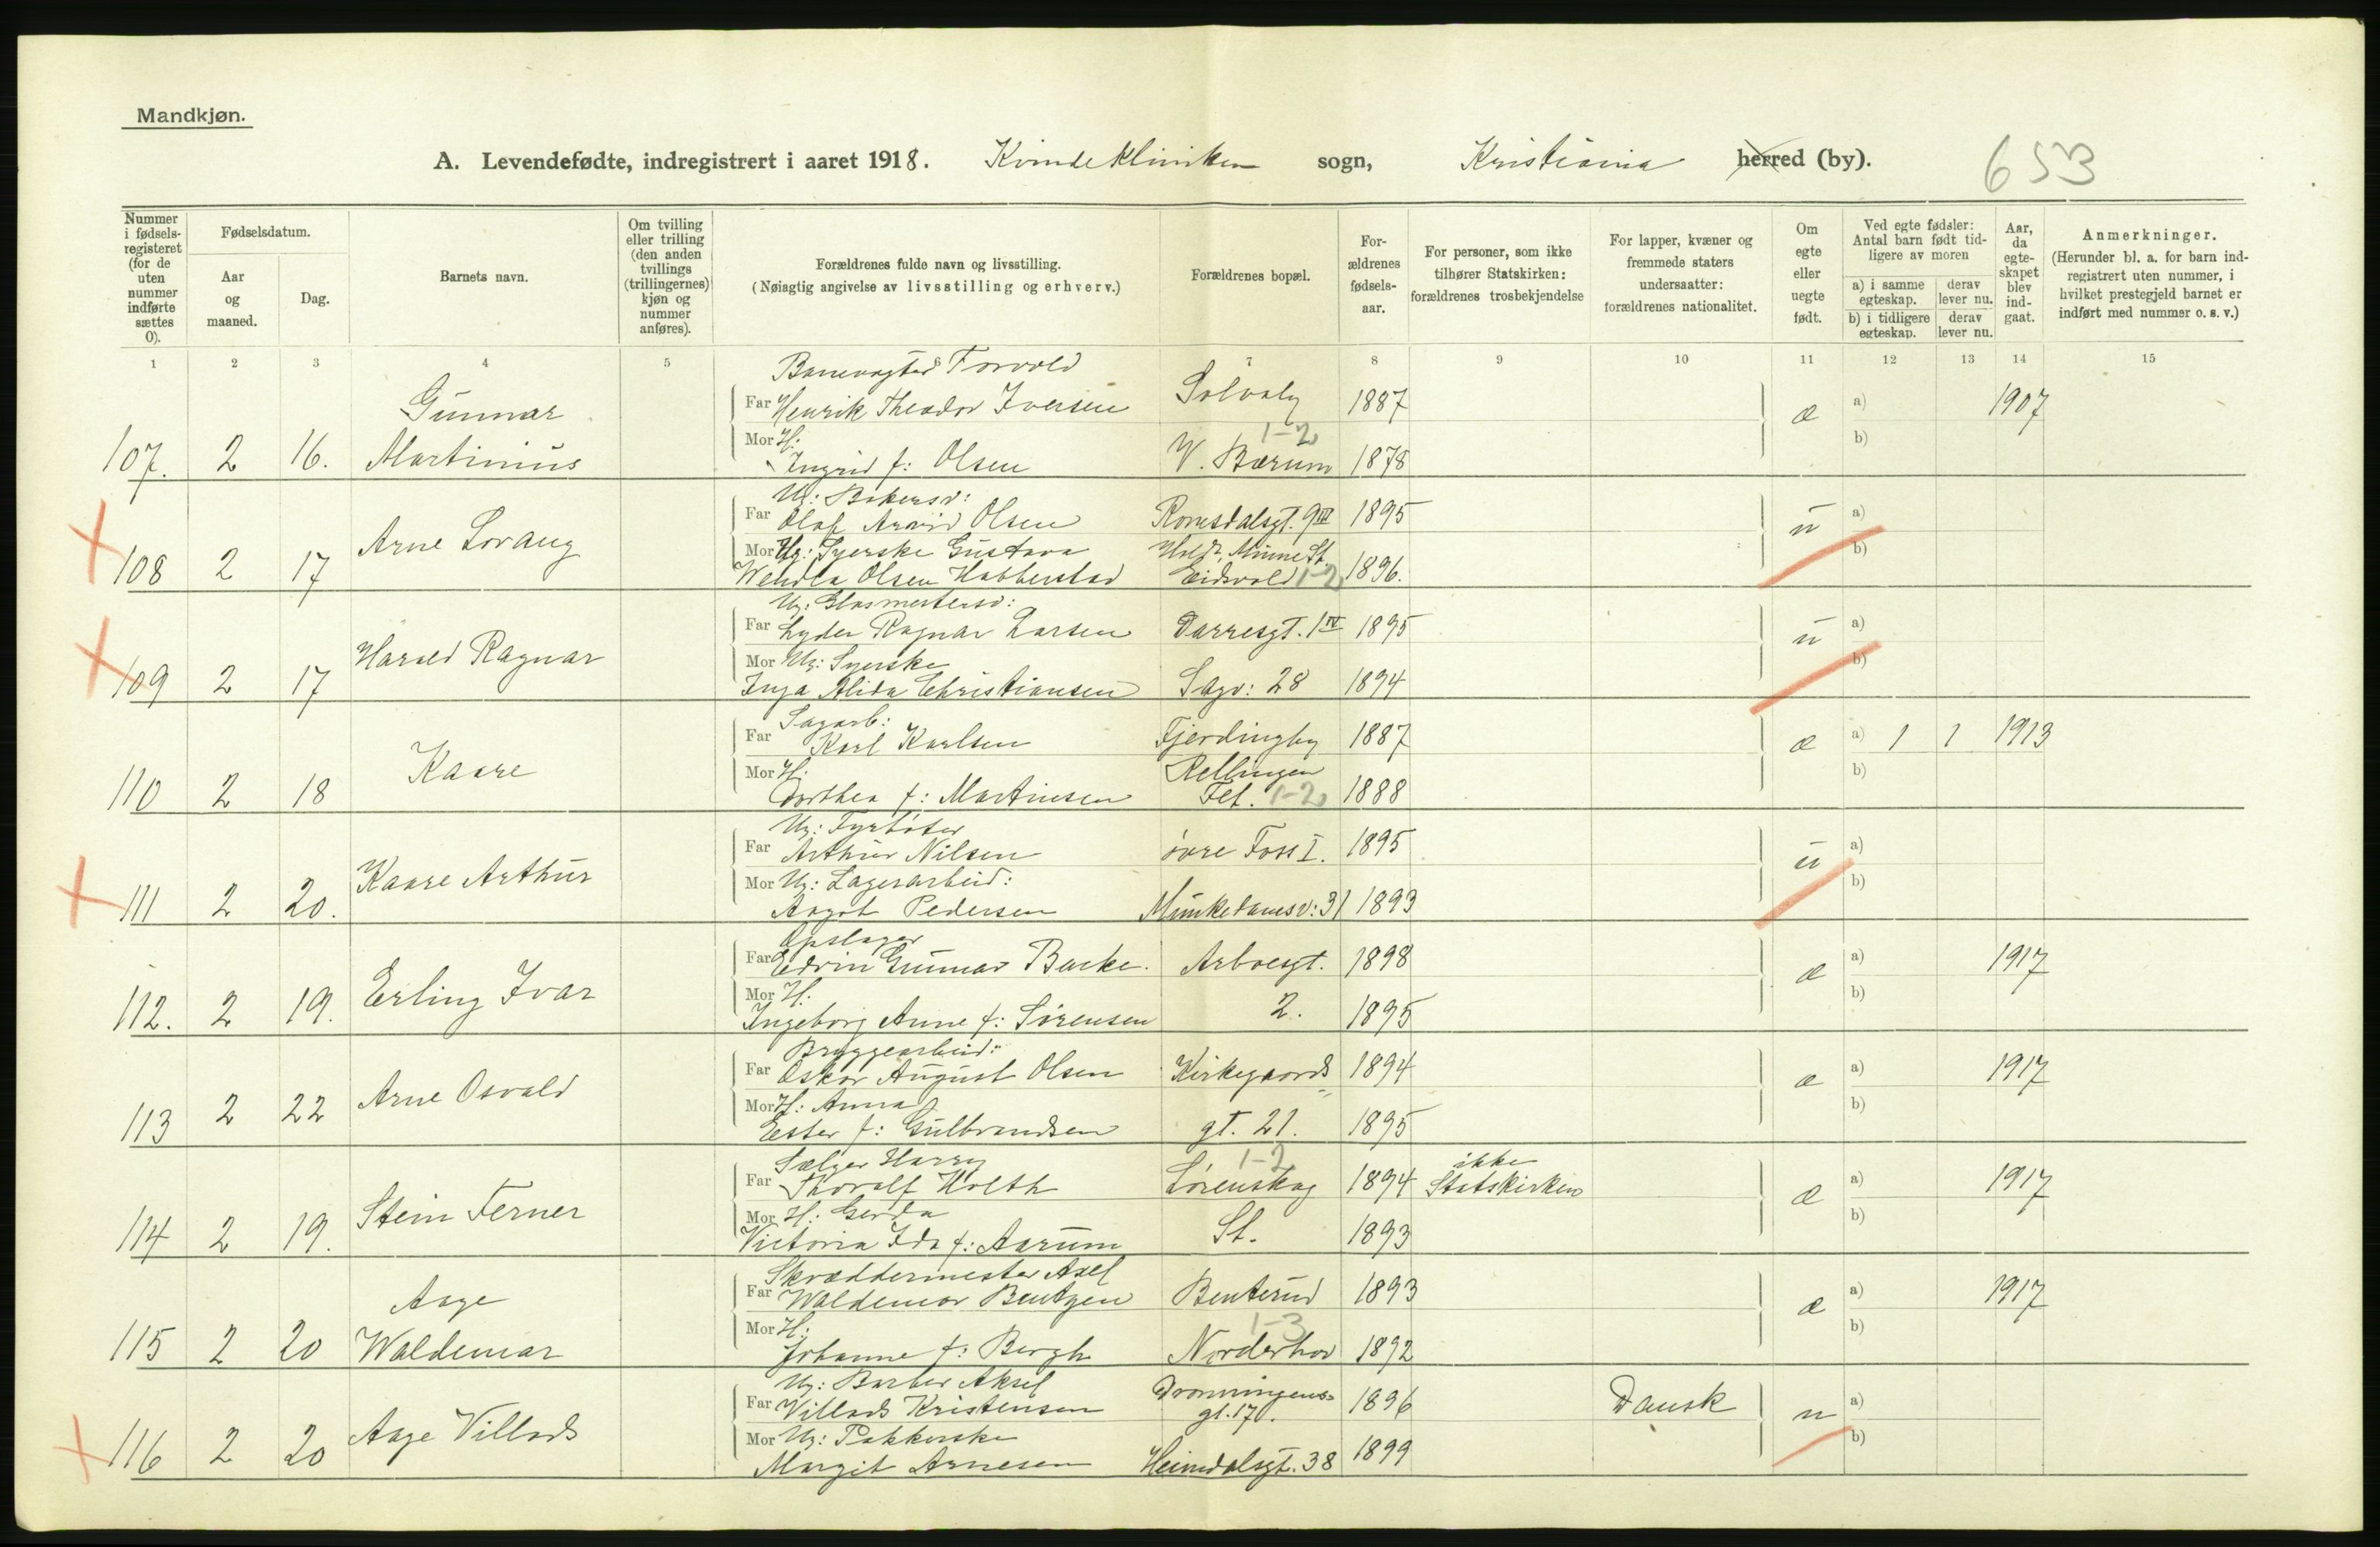 Mandkjøn.
A. Levendefødte, indregistrert i aaret 1918. Kvindekliniken sogn, Kristiania herred (by). 653
Nummer i fødsels-registeret (for de uten nummer indførte sættes 0).
Fødselsdatum.
Aar og maaned.
Dag.
Barnets navn.
Om tvilling eller trilling (den anden tvillings (trillingernes) kjøn og nummer anføres).
Forældrenes fulde navn og livsstilling.
(Nøiagtig angivelse av livsstilling og erhverv.)
Forældrenes bopæl.
For-ældrenes fødsels-aar.
For personer, som ikke tilhører Statskirken: forældrenes trosbekjendelse
For lapper, kvæner og fremmede staters undersaatter: forældrenes nationalitet.
Om egte eller uegte født.
Ved egte fødsler: Antal barn født tid-ligere av moren
a) i samme egteskap. derav lever nu.
b) i tidligere egteskap. derav lever nu.
Aar, da egte-skapet blev ind-gaat.
Anmerkninger.
(Herunder bl. a. for barn ind-registrert uten nummer, i hvilket prestegjeld barnet er indført med nummer o. s. v.)
1 2 3 4 5 6 7 8 9 10 11 12 13 14 15
Banevogter Torvald
Gunnar Far Henrik Theodor Iversen Solvaly 1887 æ a) 1907
Mor H: 1-2 b)
107. 2 16. Martinius Ingrid f: Olsen V. Bærum 1878
Ug: Bakersv:
Far Olaf Arvid Olsen Romsdalsgt. 9 III 1895 u a)
Arne Lorang Mor Ug: Syerske Gustava Minne St. b)
108 2 17 Wendla Olsen Habberstad Eidsvold 1-2 1896.
Ug: Glasmestersv:
Far Lyder Ragnar Larsen Darresgt. 1 IV 1895 u a)
Harald Ragnar Mor Ug: Syerske b)
109 2 17 Inga Alida Christiansen Sagv: 28 1894
Sagarb:
Far Karl Karlsen Fjerdingby 1887 æ a) 1 1 1913
Kaare Mor H. Rellingen b)
110 2 18 Dorthea f: Martinsen Fet. 1-2 1888
Ug: Fyrbøter
Far Arthur Nilsen øvre Foss I. 1895 u a)
Kaare Arthur Mor Ug: Lagerarbeid: b)
111 2 20. Aagot Pedersen Munkedamsv: 31 1893
Opslager
Far Edvin Gunnar Bakke. Arboesgt. 1898 æ a) 1917
Erling Ivar Mor H. b)
112. 2 19. Ingeborg Anne f: Sørensen 2. 1895
Bryggearbeid:
Far Oskar August Olsen Kirkegaards 1894 æ a) 1917
Arne Osvald Mor H: Anna b)
113 2 22 Ester f: Gulbrandsen gt. 21. 1895
Sælger Harry 1-2 ikke
Far Thoralf Holth Lørenskog 1894 Statskirken æ a) 1917
Stein Ferner Mor H: Gerda b)
114 2 19. Victoria Ida f: Aarum St. 1893
Skræddermester Axel
Aage Far Waldemar Bentzen Benterud 1893 æ a) 1917
Mor H: 1-3 b)
115 2 20 Waldemar Johanne f: Bergh Norderhov 1892
Ug: Barber Aksel Dronningens
Far Villads Kristensen gt. 17. 1896 Dansk u a)
Aage Villads Mor Ug: Pakkerske b)
116 2 20 Margit Arnesen Heimdalsgt. 38 1899